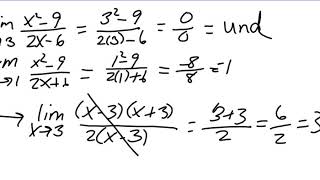 im →3 (x²-9)/(2x-6) = (3²-9)/(2(3)-6) = 0/0 = und
m →1 (x²-9)/(2x+6) = (1²-9)/(2(1)+6) = -8/8 = -1
→ lim x→3 ((x-3)(x+3))/(2(x-3)) = (3+3)/2 = 6/2 = 3